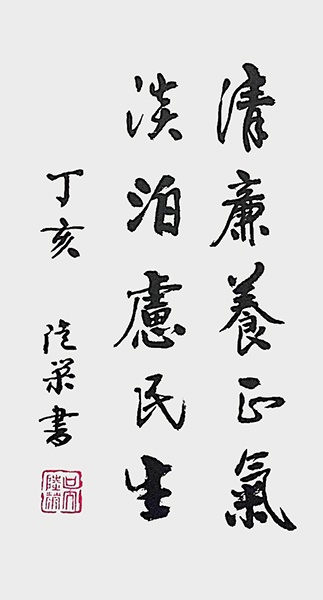 清廉養正氣
淡泊慮民生
丁亥 陸榮書